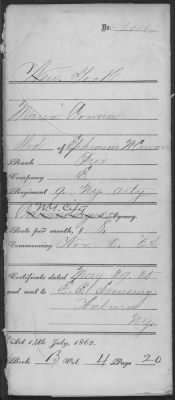 No.
New York
Maria Cowan
Wid of Ephraim W Cowan
Rank Priv
Company E
Regiment 9 Ny Arty
N.Y. City Agency.
Rate per month, $ 8
Commencing Nov 6, '64
Certificate dated May 20, 65
and sent to
Auburn
Ny
Act 14th July, 1862.
Book B Vol. 4 Page 20